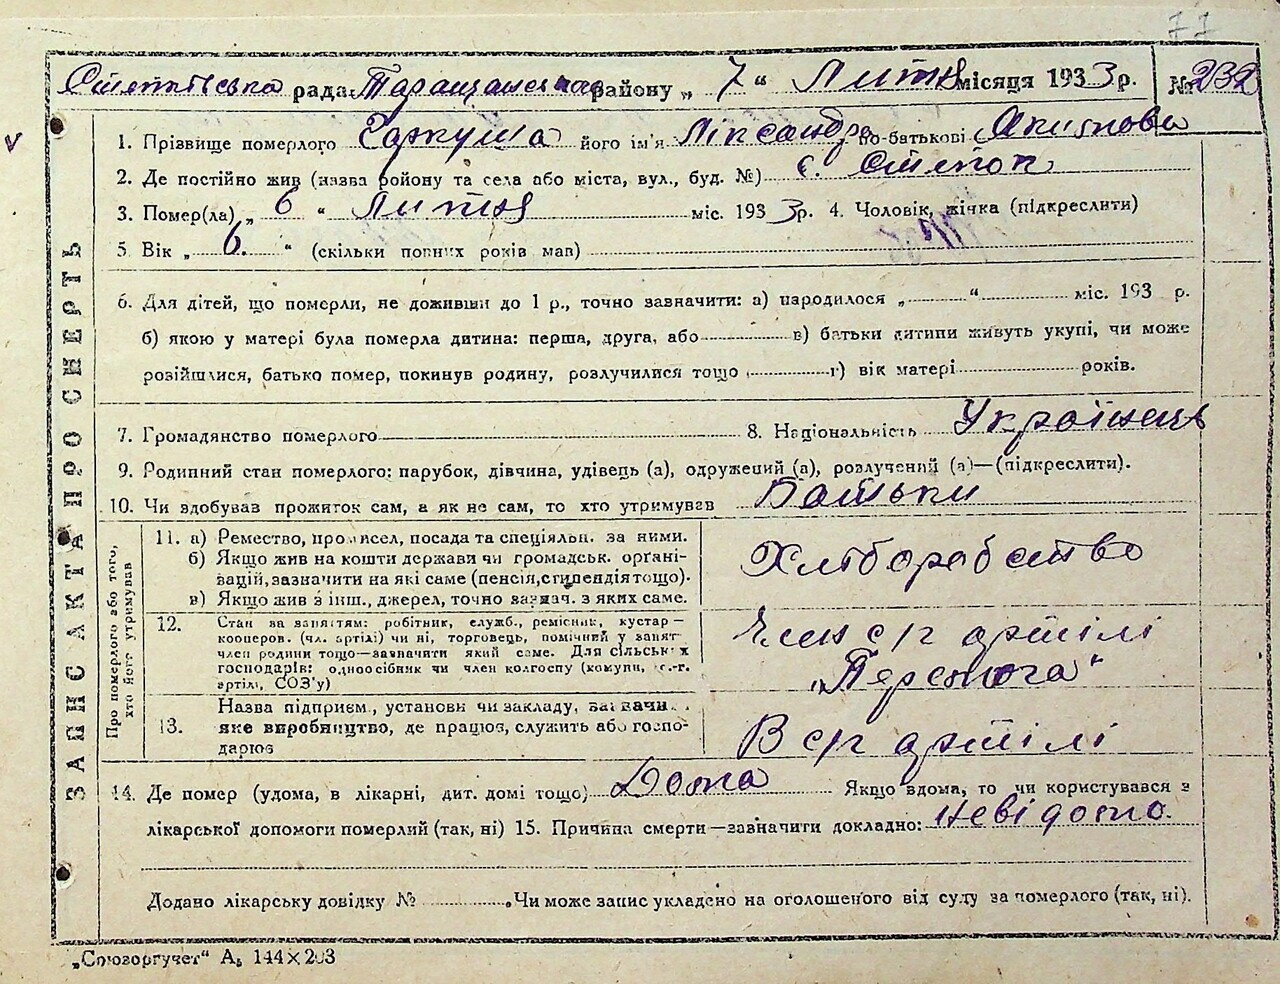 77
Степківська рада Таращанського району „ 7 “ Липня місяця 1933 р. № 232
ЗАПИС АКТА ПРО СМЕРТЬ
1. Прізвище померлого Гаркуша його ім'я Ліксандра по-батькові Якимова
2. Де постійно жив (назва району та села або міста, вул., буд. №) с. Степок
3. Помер(ла) „ 6 “ Липня міс. 1933 р. 4. Чоловік, жінка (підкреслити)
5. Вік „ 6. “ (скільки повних років мав)
6. Для дітей, що померли, не доживши до 1 р., точно зазначити: а) народилося „ “ міс. 193 р.
б) якою у матері була померла дитина: перша, друга, або в) батьки дитини живуть укупі, чи може
розійшлися, батько помер, покинув родину, розлучилися тощо г) вік матері років.
7. Громадянство померлого 8. Національність Українець
9. Родинний стан померлого: парубок, дівчина, удівець (а), одружений (а), розлучений (а)—(підкреслити).
10. Чи здобував прожиток сам, а як не сам, то хто утримував Батьки
Про померлого або того, хто його утримував
11. а) Ремество, промисел, посада та спеціяльн. за ними.
б) Якщо жив на кошти держави чи громадськ. органі-
зацій, зазначити на які саме (пенсія, стипендія тощо).
в) Якщо жив з інш., джерел, точно зазнач. з яких саме.
Хліборобство
12. Стан за заняттям: робітник, служб., ремісник, кустар—
кооперов. (чл. артілі) чи ні, торговець, помічний у занят
член родини тощо—зазначити який саме. Для сільських
господарів: одноосібник чи член колгоспу (комуни, с.-г.
артілі, СОЗ'у)
Член с/г артілі
„Перемога“
13. Назва підприєм., установи чи закладу, зазначи
яке виробництво, де працює, служить або госпо-
дарює
В с/г артілі
14. Де помер (удома, в лікарні, дит. домі тощо) Дома Якщо вдома, то чи користувався з
лікарської допомоги померлий (так, ні) 15. Причина смерти—зазначити докладно: невідомо.
Додано лікарську довідку № Чи може запис укладено на оголошеного від суду за померлого (так, ні).
„Союзоргучет“ А5 144×203